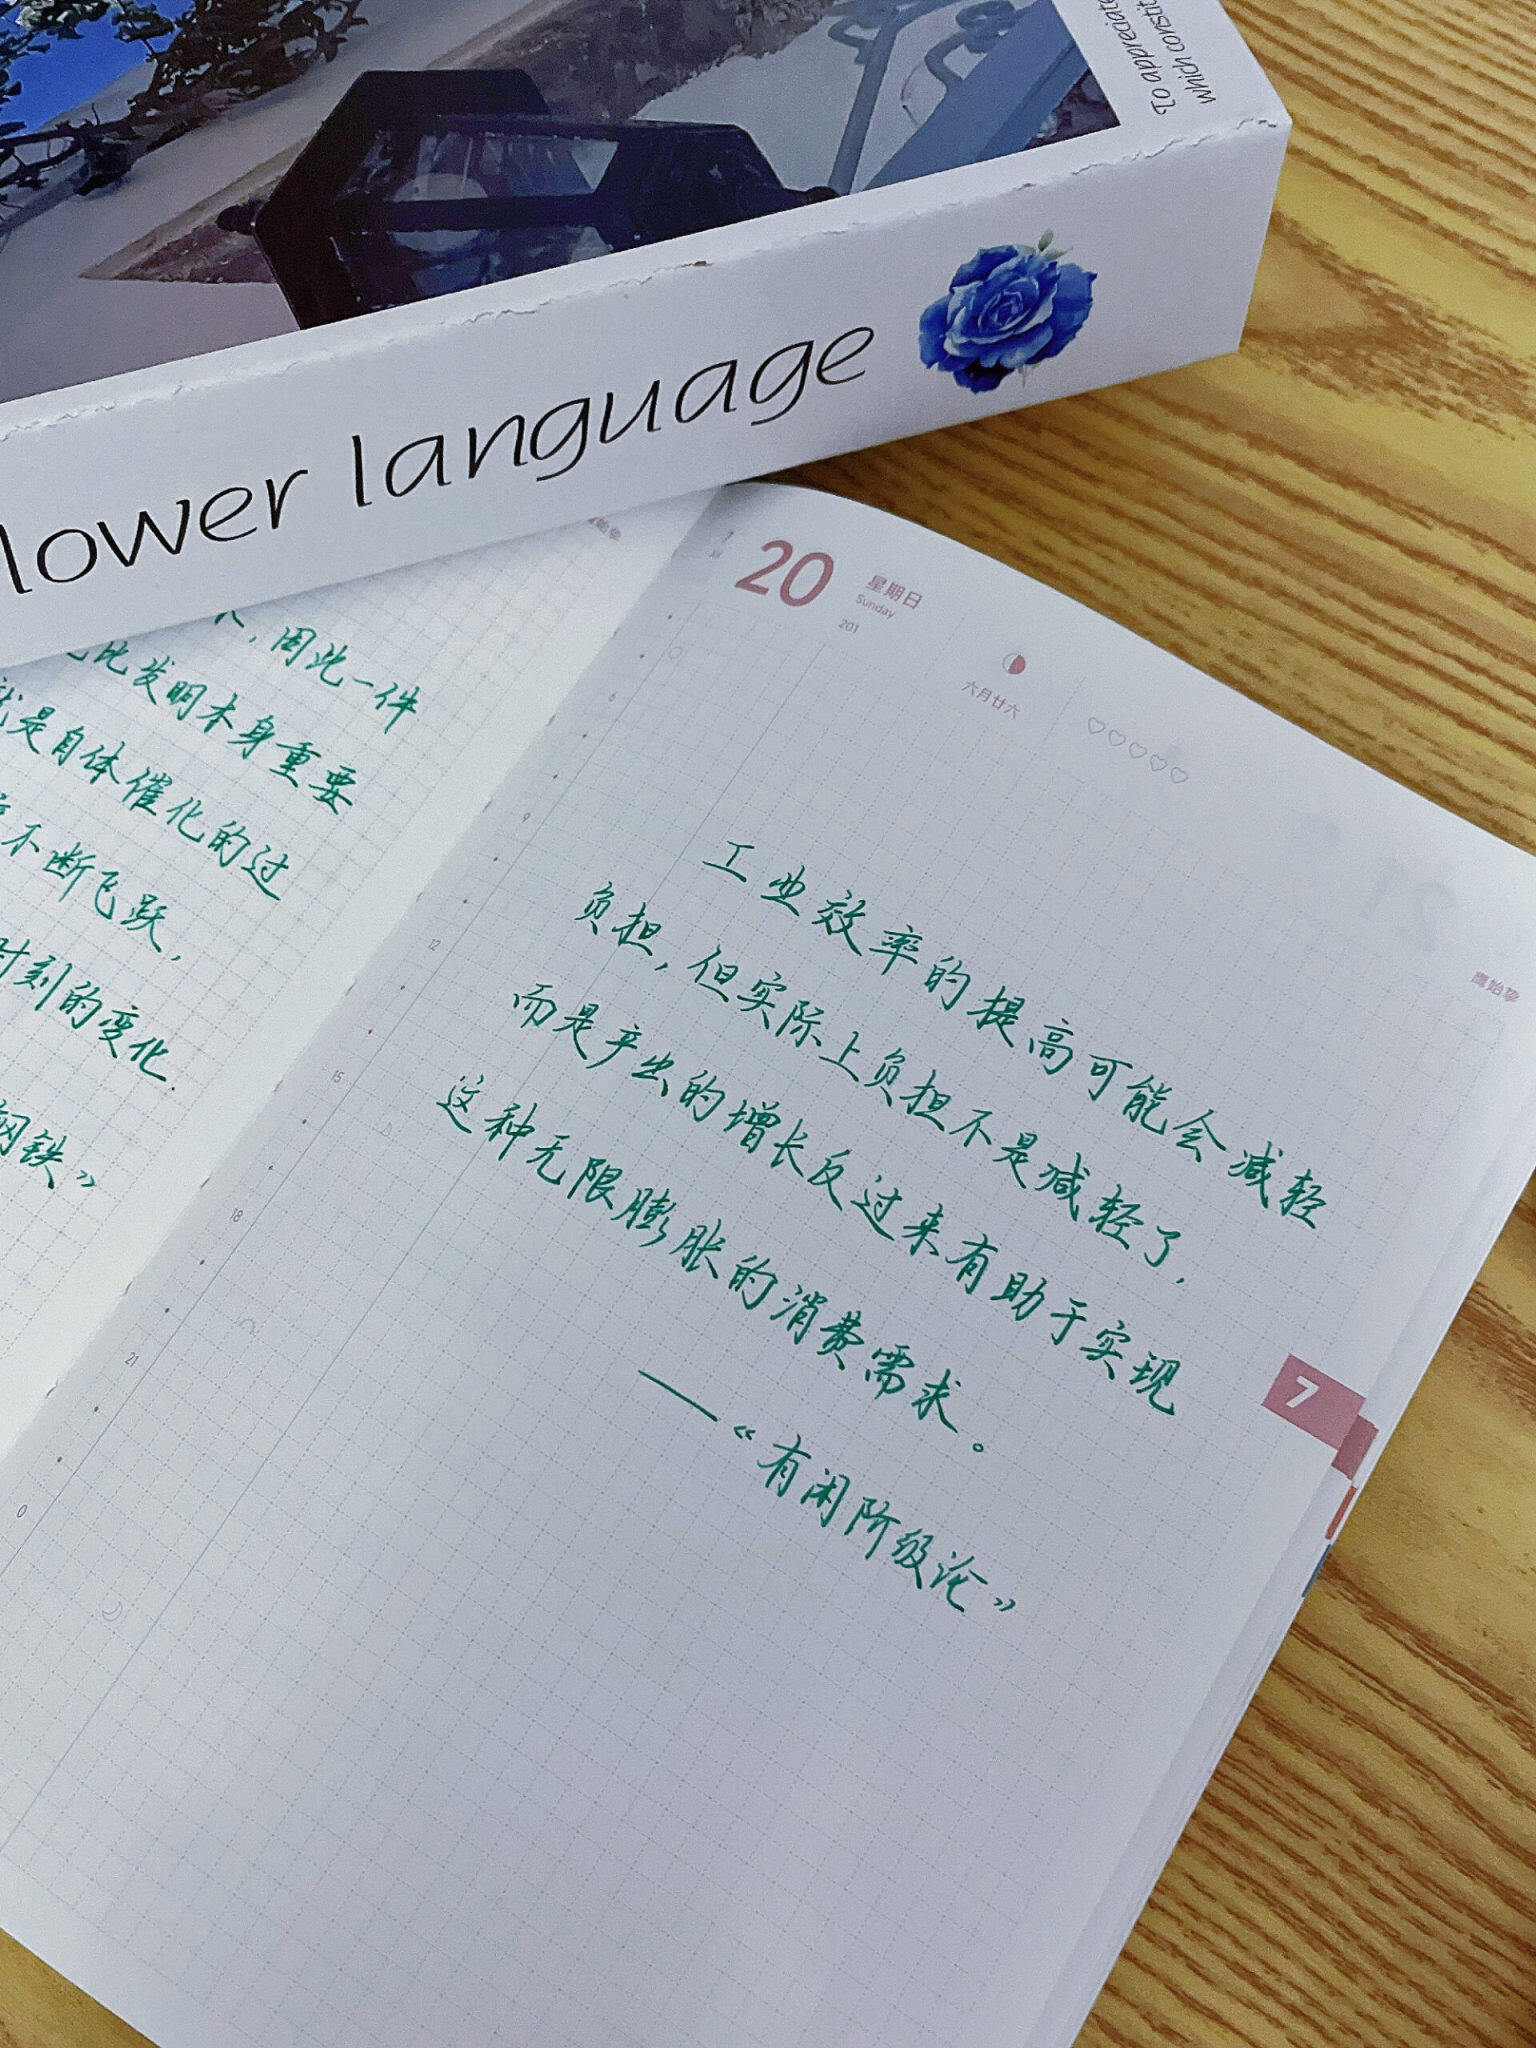 To appreciate
which constit
lower language
鹰始挚
，因此一件
比发明本身重要
就是自体催化的过
不断飞跃，
时刻的变化.
钢铁》
7
20
星期日
Sunday
201
六月廿六
6
9
12
15
18
21
0
工业效率的提高可能会减轻
负担，但实际上负担不是减轻了，
而是产出的增长反过来有助于实现
这种无限膨胀的消费需求。
——《有闲阶级论》
鹰始挚
7